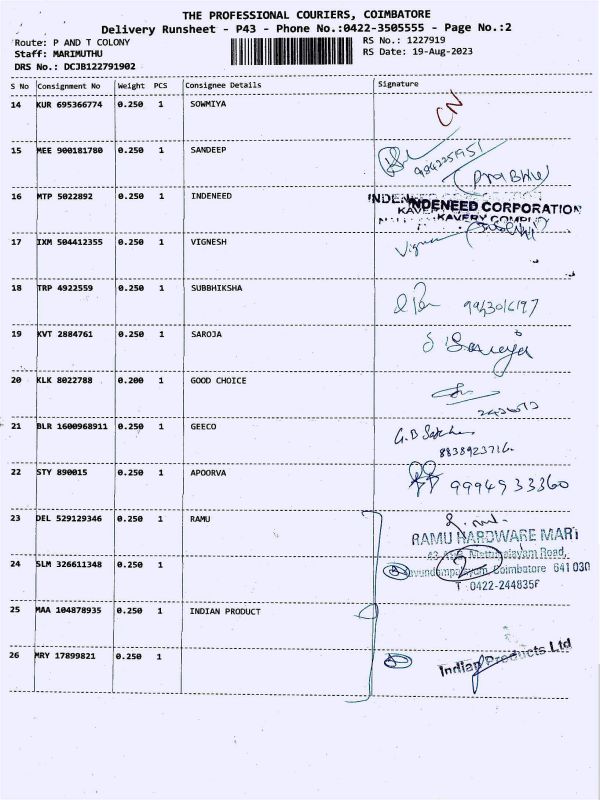 THE PROFESSIONAL COURIERS, COIMBATORE
Delivery Runsheet - P43 - Phone No.:0422-3505555 - Page No.:2
Route: P AND T COLONY
RS No.: 1227919
Staff: MARIMUTHU
RS Date: 19-Aug-2023
DRS No.: DCJB122791902
S No Consignment No Weight PCS Consignee Details Signature
14 KUR 695366774 0.250 1 SOWMIYA
CN
15 MEE 900181780 0.250 1 SANDEEP
(Prabhu)
16 MTP 5022892 0.250 1 INDENEED
INDENEED CORPORATION
KAVERY COMPL
17 IXM 504412355 0.250 1 VIGNESH
18 TRP 4922559 0.250 1 SUBBHIKSHA
19 KVT 2884761 0.250 1 SAROJA
S Saroja
20 KLK 8022788 0.200 1 GOOD CHOICE
21 BLR 1600968911 0.250 1 GEECO
8838923716
22 STY 890015 0.250 1 APOORVA
9994933360
23 DEL 529129346 0.250 1 RAMU
RAMU HARDWARE MART
Road,
24 SLM 326611348 0.250 1
2
Coimbatore 641 030
0422-244835
25 MAA 104878935 0.250 1 INDIAN PRODUCT
26 MRY 17899821 0.250 1
Indian Products Ltd